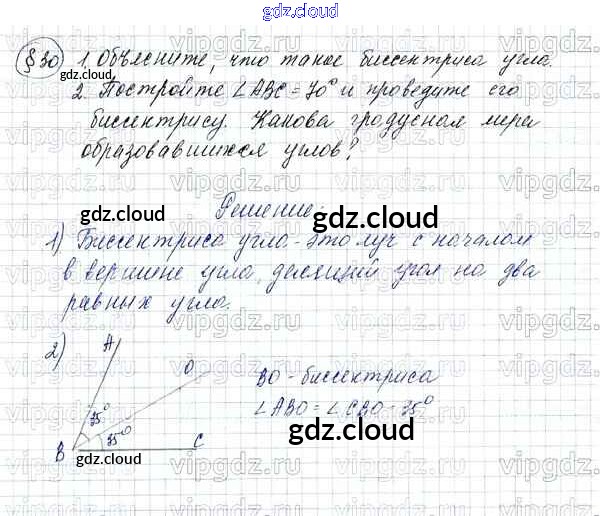 gdz.cloud
§30 1. Объясните, что такое биссектриса угла.
gdz.cloud
2. Постройте ∠ABC = 70° и проведите его
биссектрису. Какова градусная мера
образовавшихся углов?
Решение:
gdz.cloud gdz.cloud
1) Биссектриса угла - это луч с началом
в вершине угла, делящий угол на два
равных угла.
2) A
O
BO - биссектриса
35°
∠ABO = ∠CBO - 35°
35°
B C
gdz.cloud gdz.cloud
vipgdz.ru vipgdz.ru vipgdz.ru